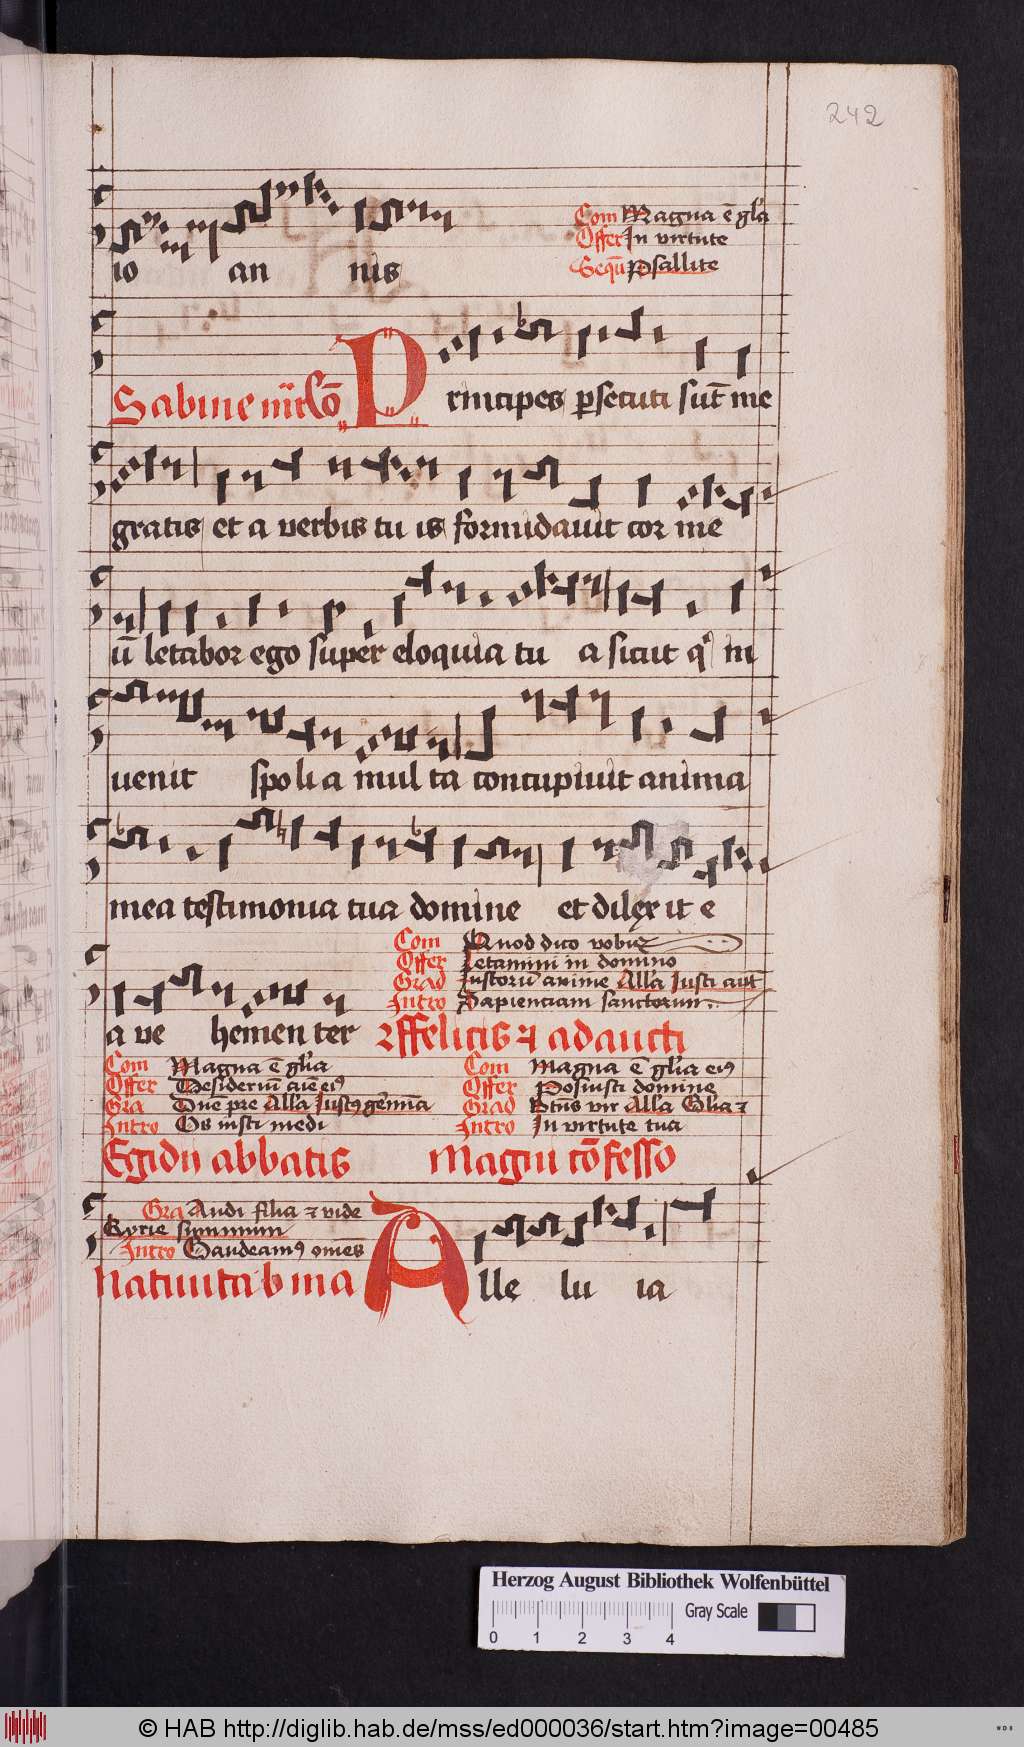 242
Com Magna ē gl'a
Offer In virtute
Sequē Psallite
io an nis
Sabine mr̄ Cō Principes p̱secuti sūt me
gratis et a verbis tu is formidauit cor me
ū letabor ego super eloquia tu a sicut q' in
uenit spoli a mul ta concupiuit anima
mea testimonia tua domine et dilexit e
Com Quod dico vobis
Offer Letamini in domino
Grad Iustorū anime Alla Iusti aūt
Intro Sapienciam sanctorum
a ve hemen ter Felicis ⁊ adaucti
Com Magna ē gl'ia
Offer Desideriū aīe eiꝰ
Gra Dn̄e pre Alla Iustꝰ gēmīa
Intro Os iusti medi
Com Magna ē gl'ia eiꝰ
Offer Posuisti domine
Grad Btūs vir Alla
Intro In virtute tua
Egidij abbatis Magni cōfesso
Gra Audi filia ⁊ vide
Kyrie summum
Intro Gaudeamꝰ omēs
Natiuita b ma Alle lu ia
Herzog August Bibliothek Wolfenbüttel
Gray Scale
0 1 2 3 4
© HAB http://diglib.hab.de/mss/ed000036/start.htm?image=00485